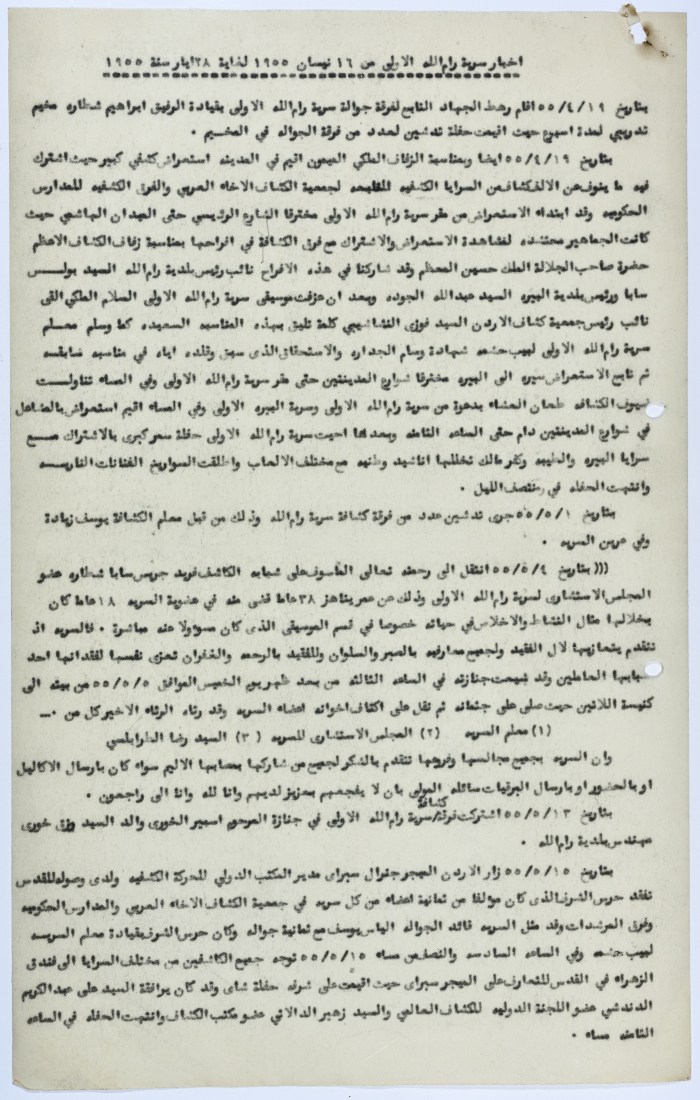 اخبار سرية رام الله الاولى من ١٦ نيسان ١٩٥٥ لغاية ٢٨ ايار سنة ١٩٥٥
بتاريخ ٥٥/٤/١٩ اقام رهط الجهاد التابع لفرقة جوالة سرية رام الله الاولى بقيادة الرفيق ابراهيم شطاره مخيم
تدريبي لمدة اسبوع حيث اقيمت حفلة تدشين لعدد من فرقة الجواله في المخيم .
بتاريخ ٥٥/٤/١٩ ايضا وبمناسبة الزفاف الملكي الميمون اقيم في المدينه استعراض كشفي كبير حيث اشترك
فيه ما ينوف عن الالف كشاف من السرايا الكشفيه التابعه لجمعية الكشاف الاخاء العربي والفرق الكشفيه للمدارس
الحكوميه وقد ابتداء الاستعراض من مقر سرية رام الله الاولى مخترقا الشارع الرئيسي حتى الميدان الهاشمي حيث
كانت الجماهير محتشده لمشاهدة الاستعراض والاشتراك مع فرق الكشافة في افراحها بمناسبة زفاف الكشاف الاعظم
حضرة صاحب الجلالة الملك حسين المعظم وقد شاركنا في هذه الافراح نائب رئيس بلدية رام الله السيد بولـــس
سابا ورئيس بلدية البيره السيد عبد الله الجوده وبعد ان عزفت موسيقى سرية رام الله الاولى السلام الملكي القى
نائب رئيس جمعية كشاف الاردن السيد فوزى النشاشيبي كلمة تليق بهذه المناسبه السعيده كما وسلم معــلم
سرية رام الله الاولى لبيب حشمه شهادة وسام الجداره والاستحقاق الذى سبق وقلده اياه في مناسبه سابقــه
ثم تابع الاستعراض سيره الى البيره مخترقا شوارع المدينتين حتى مقر سرية رام الله الاولى وفي المساء تناولــت
ضيوف الكشافه طعام العشاء بدعوة من سرية رام الله الاولى وسرية البيره الاولى وفي المساء اقيم استعراض بالمشاعل
في شوارع المدينتين دام حتى الساعه الثامنه وبعدها احيت سرية رام الله الاولى حفلة سمر كبرى بالاشتراك مــع
سرايا البيره والطيبه وكفر مالك تخللها اناشيد وطنيه مع مختلف الالعاب واطلقت الصواريخ الفنانات الناريــه
وانتهت الحفله في منتصف الليل .
بتاريخ ٥٥/٥/١ جرى تدشين عدد من فرقة كشافة سرية رام الله وذلك من قبل معلم الكشافة يوسف زيادة
وفي عرين السريه .
((( بتاريخ ٥٥/٥/٤ انتقل الى رحمته تعالى المأسوف على شبابه الكاشف فريد جريس سابا شطاره عضو
المجلس الاستشارى لسرية رام الله الاولى وذلك عن عمر يناهز ٣٨ عاما قضى منه في عضوية السريه ١٨ عاما كان
بخلالها مثال النشاط والاخلاص في حياته خصوصا في قسم الموسيقى الذى كان مسؤولا عنه مباشرة . فالسريه اذ
تتقدم بتعازيها لال الفقيد ولجميع معارفيه بالصبر والسلوان وللفقيد بالرحمه والغفران تعزى نفسها لفقدانها احد
شبابها العاملين وقد شيعت جنازته في الساعه الثالثه من بعد ظهر يوم الخميس الموافق ٥٥/٥/٥ من بيته الى
كنيسة اللاتين حيث صلى على جثمانه ثم نقل على اكتاف اخوانه اعضاء السريه وقد رثاه الرثاء الاخير كل من .ـــ
(١) معلم السريه (٢) المجلس الاستشارى للسريه (٣) السيد رضا الطرابلسي
وان السريه بجميع مجالسها وفروعها تتقدم بالشكر لجميع من شاركها بمصابها الاليم سواء كان بارسال الاكاليل
او بالحضور او بارسال البرقيات سائله المولى بان لا يفجعهم بعزيز لديهم وانا لله وانا الى راجعون .
كشافة
بتاريخ ٥٥/٥/١٣ اشتركت فرقة/سرية رام الله الاولى في جنازة المرحوم اسبير الخورى والد السيد رزق خورى
مهندس بلدية رام الله .
بتاريخ ٥٥/٥/١٥ زار الاردن الميجر جنرال سبراى مدير المكتب الدولي للحركة الكشفيه ولدى وصوله للقدس
تفقد حرس الشرف الذى كان مؤلفا من ثمانية اعضاء من كل سريه في جمعية الكشاف الاخاء العربي والمدارس الحكوميه
وفرق المرشدات وقد مثل السريه قائد الجواله الياس يوسف مع ثمانية جواله وكان حرس الشرف بقيادة معلم السريــه
لبيب حشمه وفي الساعه السادسه والنصف من مساء ٥٥/٥/١٥ توجه جميع الكاشفين من مختلف السرايا الى فندق
الزهراء في القدس للتعارف على الميجر سبراى حيث اقيمت على شرفه حفلة شاى وقد كان يرافقة السيد على عبد الكريم
الدندشي عضو اللجنة الدوليه للكشاف العالمي والسيد زهير الدالاتي عضو مكتب الكشاف وانتهت الحفله في الساعه
الثامنه مساء .